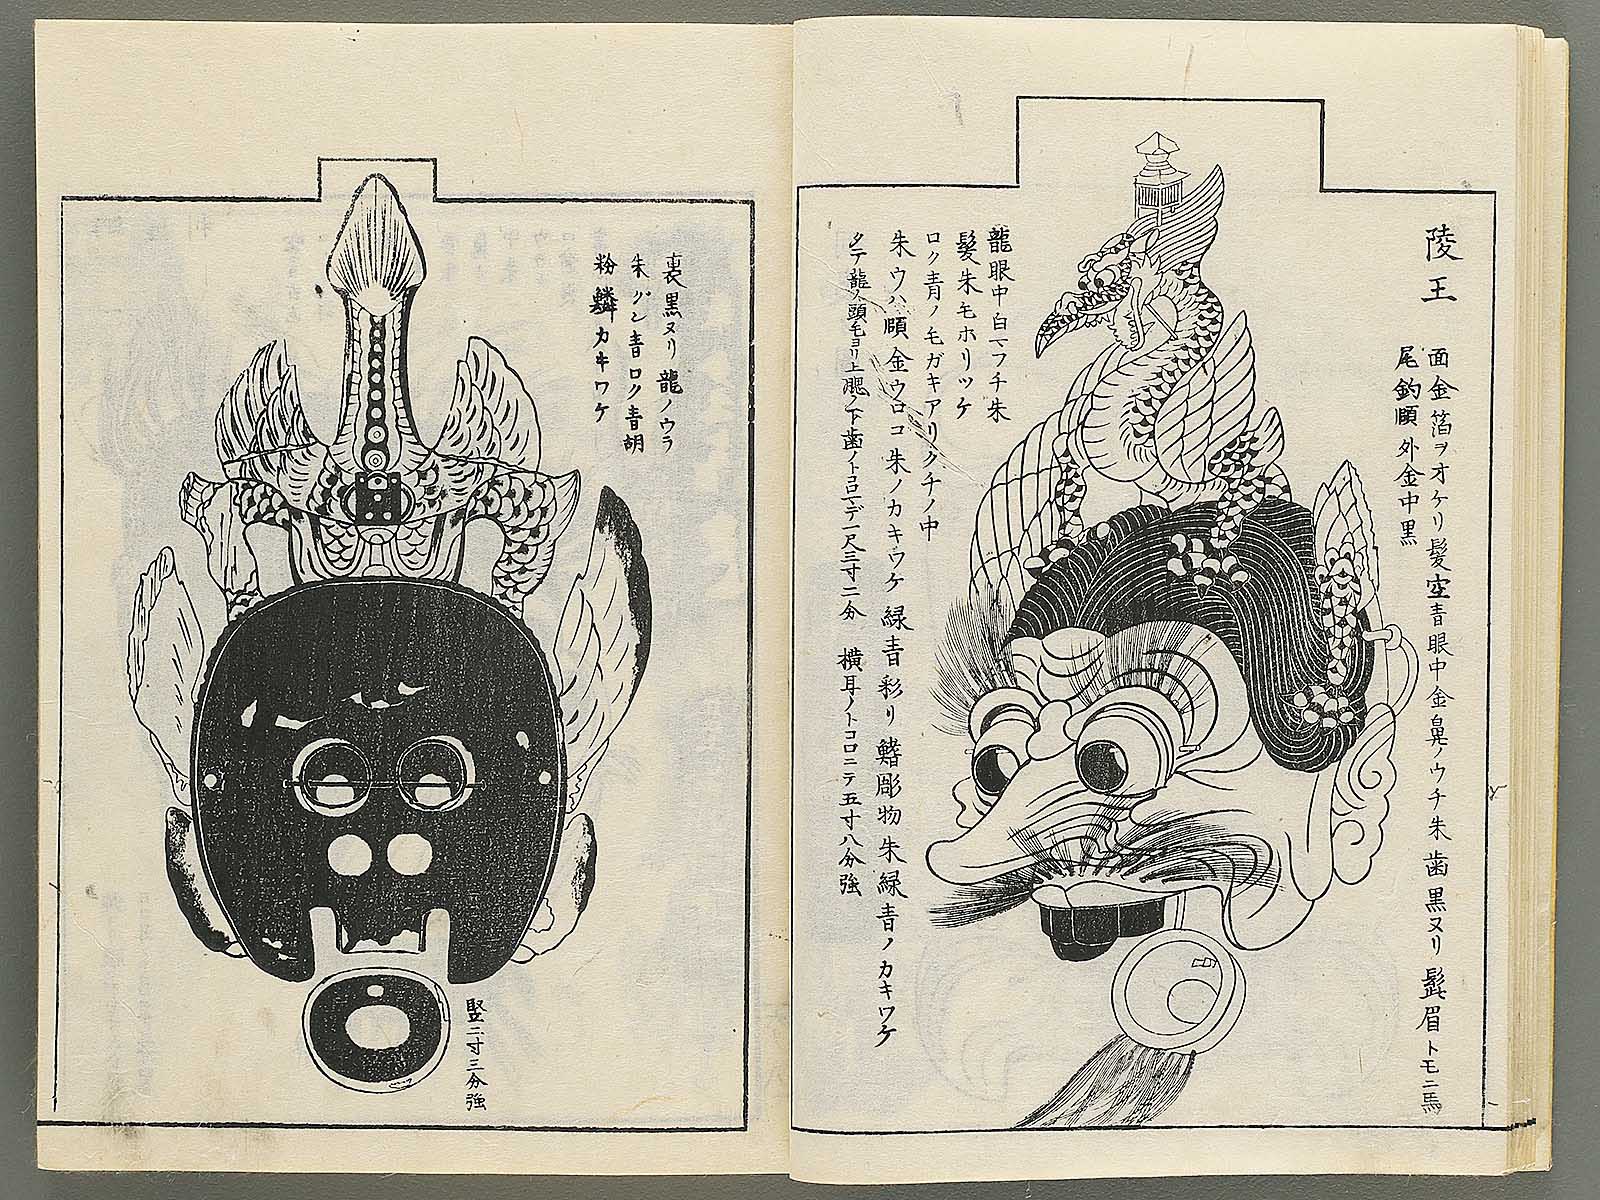 陵王
面金箔ヲオケリ髪空青眼中金鼻ノウチ朱歯黒ヌリ髭眉トモニ馬
尾釣頤外金中黒
龍眼中白マフチ朱
髪朱モホリツケ
ロク青ノモガキアリクチノ中
朱ウハ頤金ウロコ朱ノカキワケ緑青彩リ鰭彫物朱緑青ノカキワケ
タテ龍ノ頭モヨリ上腮ノ下歯ノトコロマデ一尺三寸二分 横耳ノトコロニテ五寸八分強
裏黒ヌリ龍ノウラ
朱グン青ロク青胡
粉鱗カキワケ
竪二寸三分強